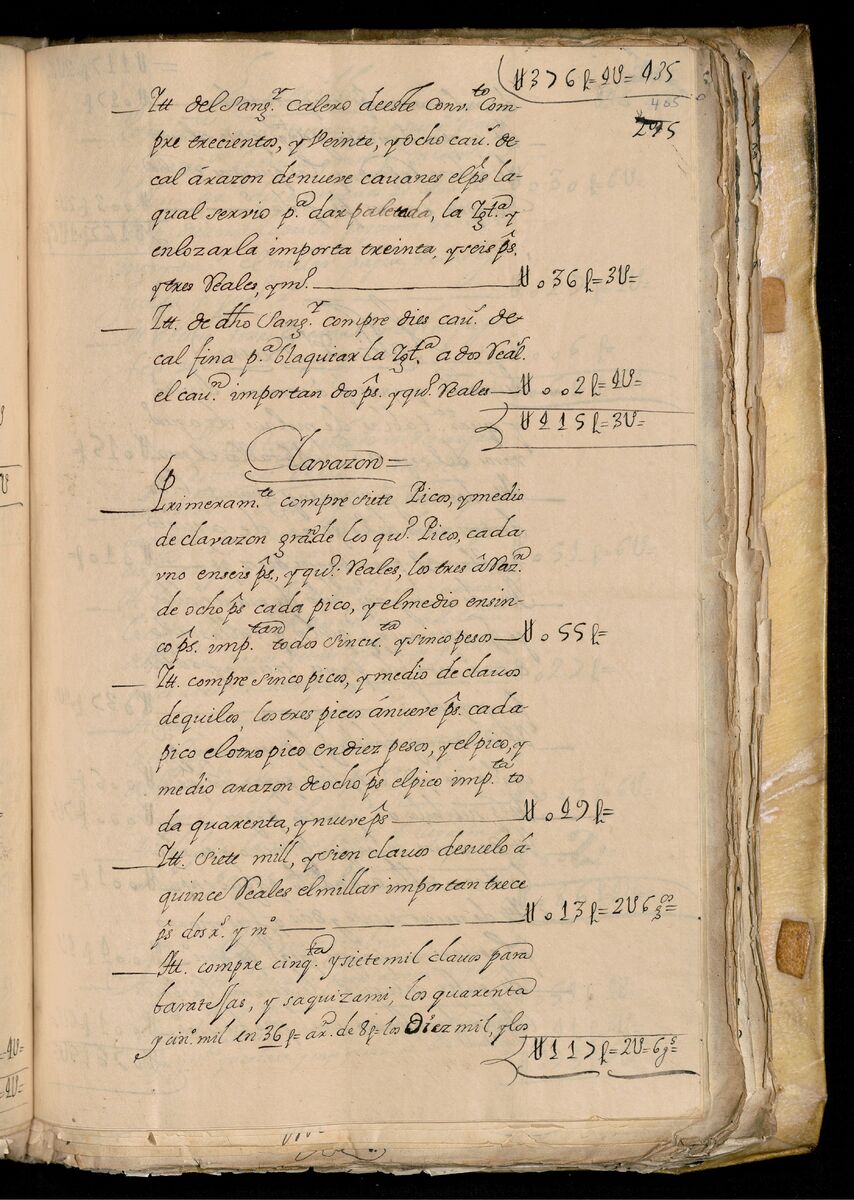 U376p=4U= 435
405
295
Itt del Sangr. calero deeste Convto Com-
pre trecientos, y Veinte, y ocho caus. de
cal árazon denueve cavanes elps la
qual servio pa dar paletada, la Igta y
enlozarla importa treinta, y seis ps.
y tres Reales, y mo. U o 36 p=3U=
Itt. de dho Sangr. compre dies caus. de
cal fina pa blaquiar la Igta a dos Real.
el caun. importan dos ps. y quo. Reales U o o 2 p=4U=
U 115 p=3U=
Clavazon=
Primeramte compre siete Picos, y medio
de clavazon grande los quo. Pico, cada
vno enseis ps., y quo. Reales, los tres â Razn.
de ocho ps cada pico, y elmedio ensin-
co ps. imptan todos sincta y sinco pesos U o 55 p=
Itt. compre sinco picos, y medio de clavos
dequilo, los tres picos ánueve ps. cada
pico elotro pico en diez pesos, y el pico, y
medio arazon de ocho ps el pico impta to
da quarenta, y nueve ps U o 49 p=
Itt. siete mill, y sien clavos desuelo â
quince Reales elmillar importan trece
ps dos rs. y mo U o 13 p=2U6 gos=
Itt. compre cinqta y siete mil clavos para
baratessas, y saquizami, los quarenta
y cino. mil en 36 p= arn. de 8 p= los Diez mil, y los
U 117 p=2U=6 gs=